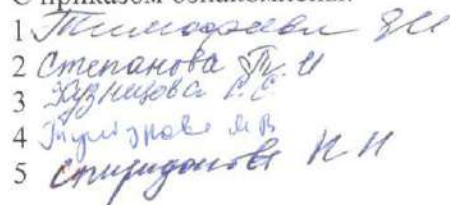 С приказом ознакомлены:
1 Тимофеева
2 Степанова Т. И
3 Кузнецова С. С.
4 М В
5 Спиридонова Н Н